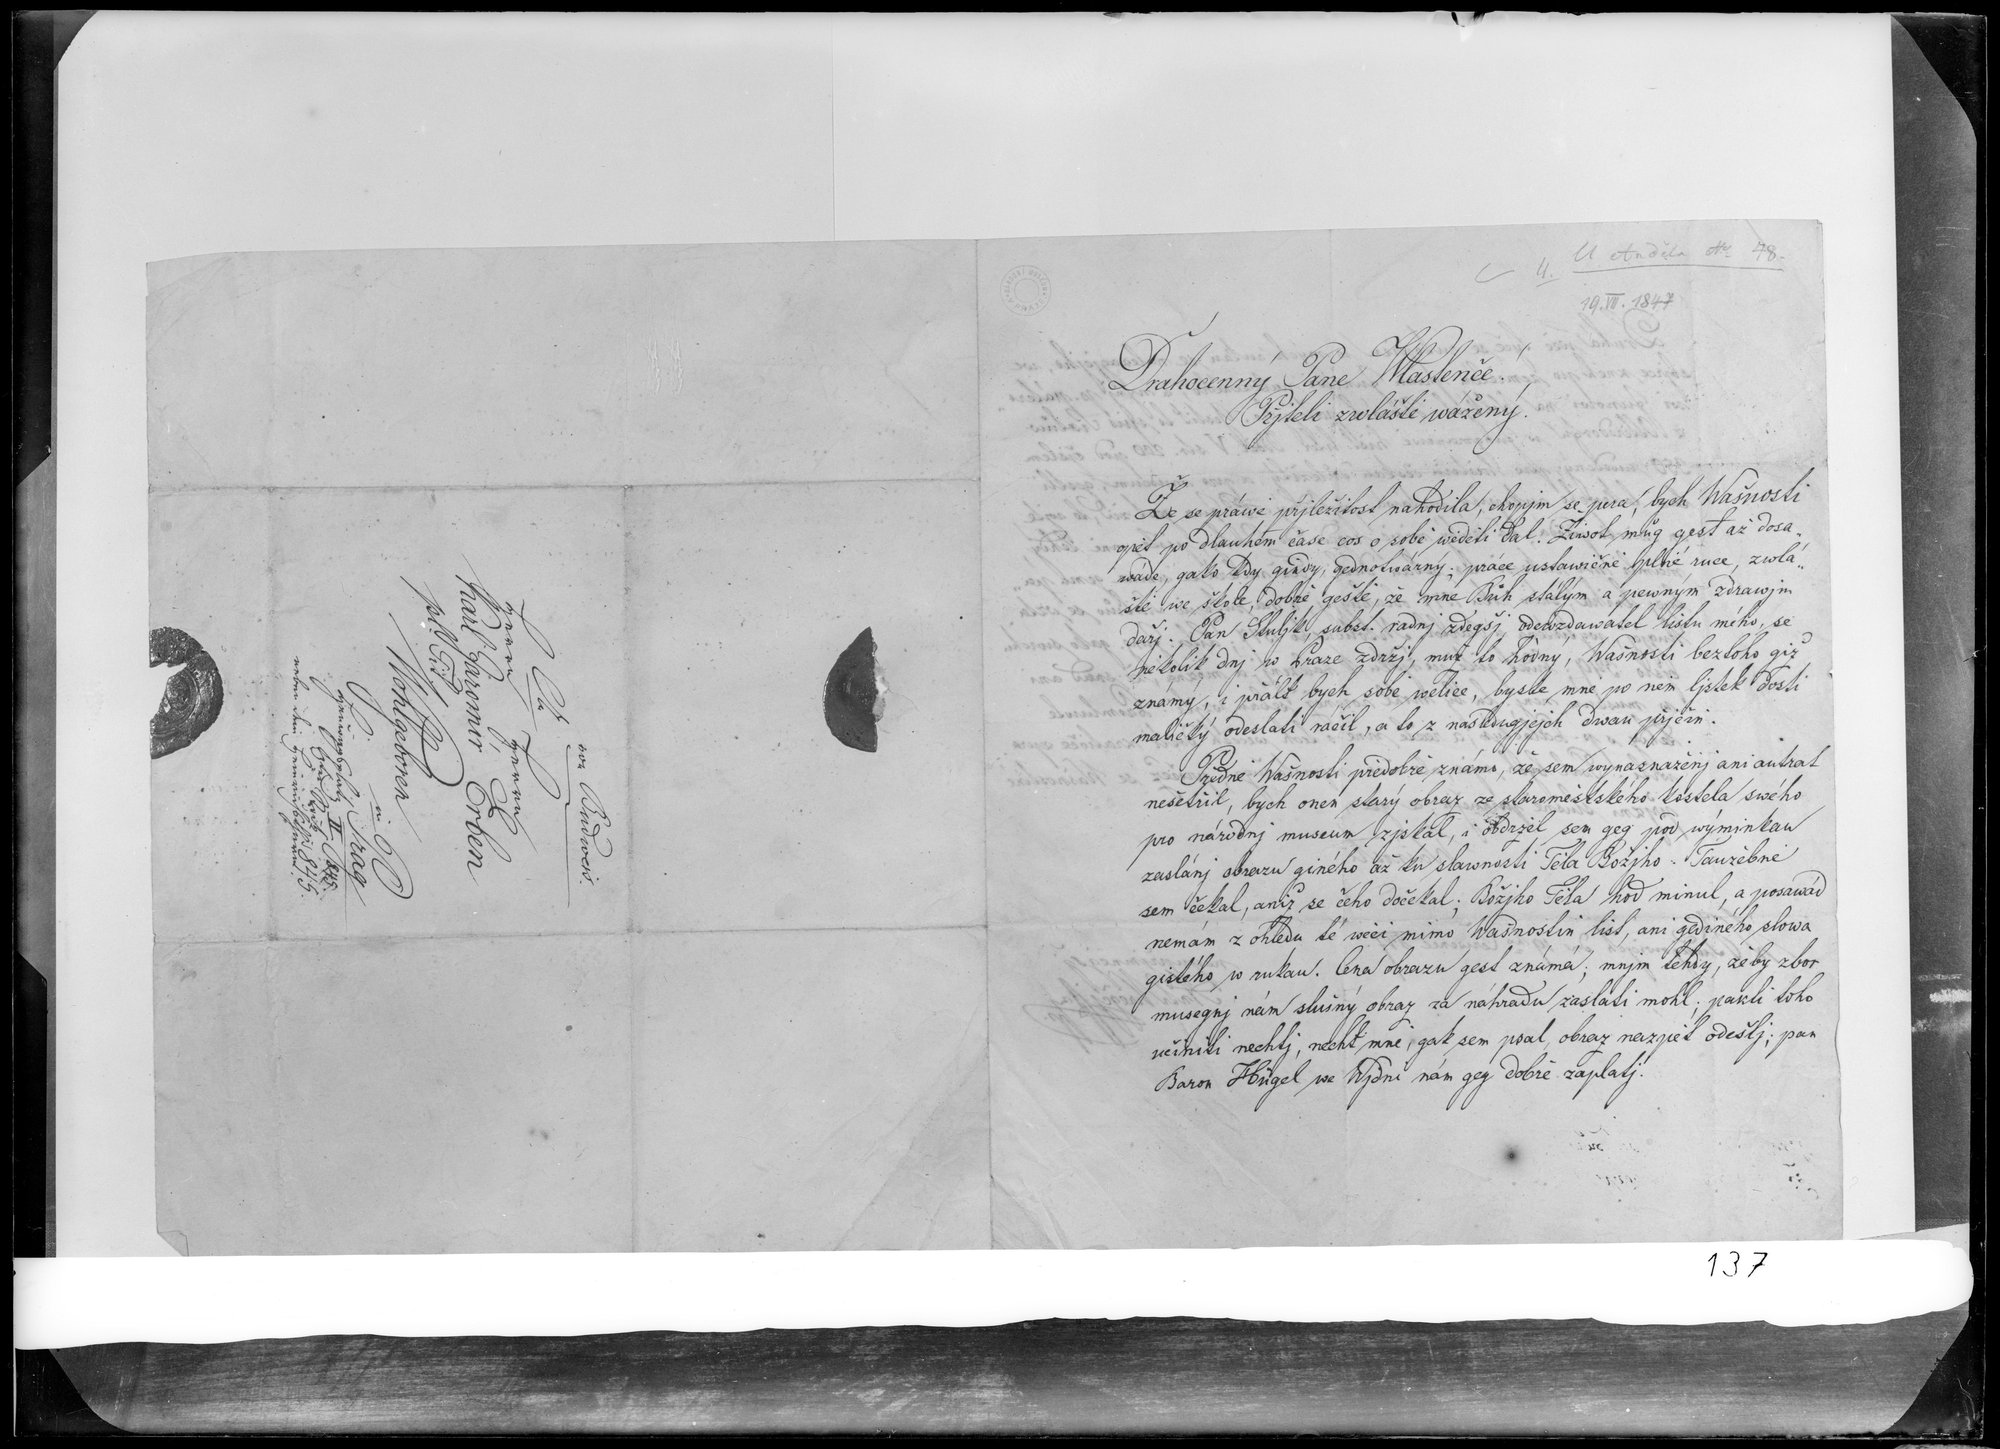 4. U Anděla No 48.
19. VII. 1847
Drahocenný Pane Wlastenče!
Přjteli zwláště wážený!
Že se práwě přjležitost nahodila, chopjm se pera, bych Wašnosti
opět po dlauhém čase cos o sobě wěděti dal. Žiwot můg gest až dosa„
wáde, gako kdy gindy, gednotwárný; práce ustawičně plné ruce, zwlá„
ště we škole, dobře geště, že mne Bůh stálým a pewným zdrawjm
dařj. Pan Stuljk, subst. radnj zdegšj, odewzdawatel listu mého, se
několik dnj w Praze zdržj, muž to hodný, Wašnosti beztoho giž
známý, i přál bych sobě welice, byste mně po něm ljstek dosti
maličký odeslati ráčil, a to z následugjcjch dwau přjčin.
Předně Wašnosti předobře známo, že sem wynasnaženj ani autrat
nešetřil, bych onen starý obraz ze staroměstského kostela swého
pro národnj museum zjskal, i obdržel sem geg pod wýminkau
zaslánj obrazu giného až ku slawnosti Těla Božjho. Taužebně
sem čekal, aniž se čeho dočekal; Božjho Těla hod minul, a posawád
nemám z ohledu té wěci mimo Wašnostin list, ani gediného slowa
gistého w rukau. Cena obrazu gest známá; mnjm tehdy, že by zbor
musegnj nám slušný obraz za náhradu zaslati mohl; pakli toho
učiniti nechtj, nechť mně, gak sem psal, obraz nazpět odešlj; pan
Baron Hügel we Wjdni nám geg dobře zaplatj.
von Budweis.
Sr.
Herrn Herrn
Karl Jaromir Erben
Wohlgeboren
in
Prag
137